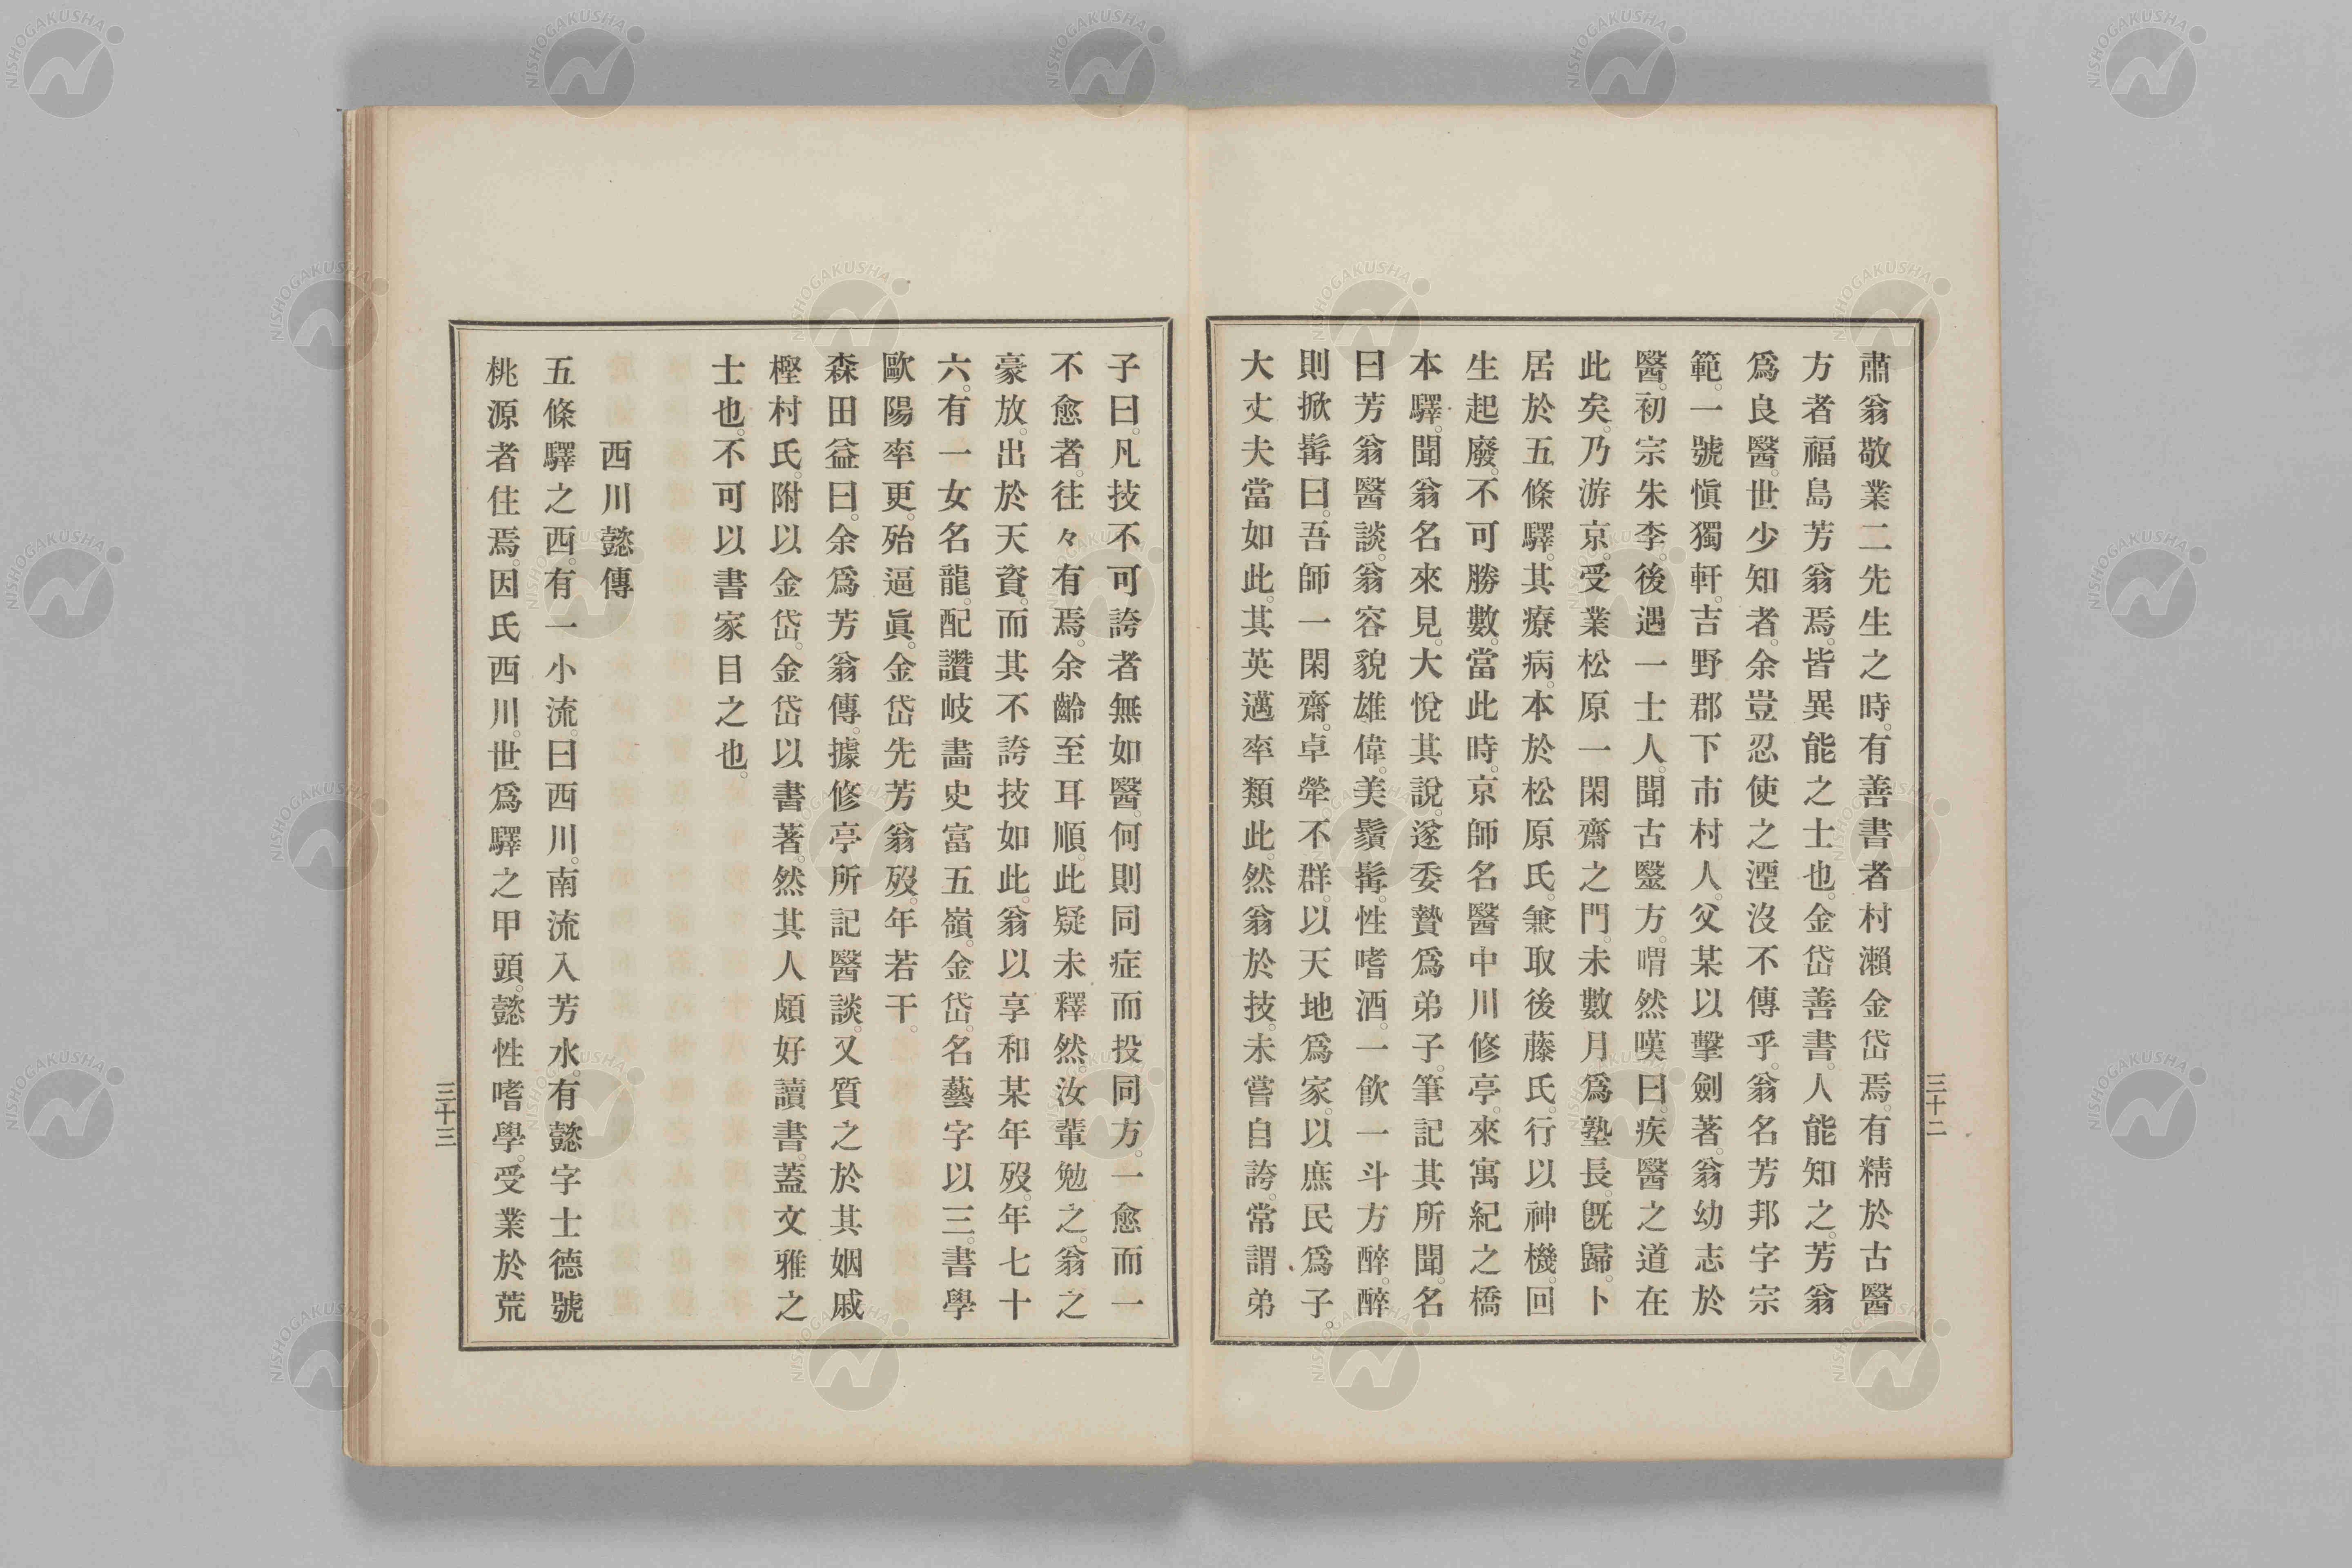 肅翁敬業二先生之時。有善書者村瀨金岱焉。有精於古醫
方者福島芳翁焉。皆異能之士也。金岱善書。人能知之。芳翁
爲良醫。世少知者。余豈忍使之湮沒不傳乎。翁名芳邦字宗
範。一號愼獨軒。吉野郡下市村人。父某以擊劍著。翁幼志於
醫。初宗朱李後遇一士人。聞古醫方。喟然嘆曰。疾醫之道在
此矣。乃游京。受業松原一閑齋之門。未數月。爲塾長。旣歸。卜
居於五條驛。其療病。本於松原氏。兼取後藤氏。行以神機。回
生起廢。不可勝數。當此時。京師名醫中川修亭。來寓紀之橋
本驛。聞翁名來見。大悅其說。遂委贄爲弟子。筆記其所聞。名
曰芳翁醫談。翁容貌雄偉。美鬚髯。性嗜酒。一飮一斗方醉。醉
則掀髯曰。吾師一閑齋。卓犖不群。以天地爲家。以庶民爲子。
大丈夫當如此。其英邁率類此。然翁於技。未嘗自誇。常謂弟
三十二
子曰。凡技不可誇者無如醫。何則同症而投同方。一愈而一
不愈者。往々有焉。余齡至耳順。此疑未釋然。汝輩勉之。翁之
豪放。出於天資。而其不誇技如此。翁以享和某年歿。年七十
六。有一女名龍。配讚岐畵史富五嶺。金岱。名藝字以三。書學
歐陽率更。殆逼眞。金岱先芳翁歿。年若干。
森田益曰。余爲芳翁傳。據修亭所記醫談。又質之於其姻戚
樫村氏。附以金岱。金岱以書著。然其人頗好讀書。蓋文雅之
士也。不可以書家目之也。
西川懿傳
五條驛之西。有一小流。曰西川。南流入芳水。有懿字士德號
桃源者住焉。因氏西川。世爲驛之甲頭。懿性嗜學。受業於荒
三十三